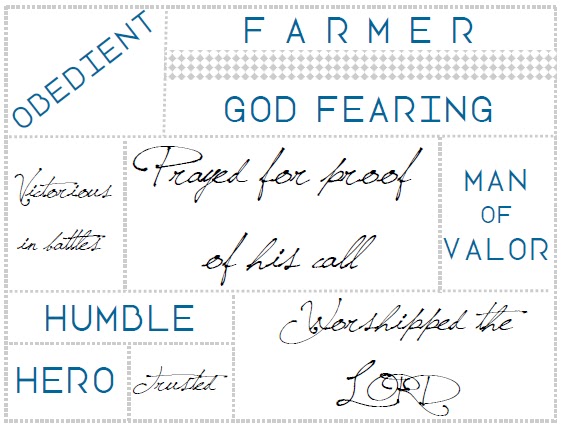 OBEDIENT
FARMER
GOD FEARING
Victorious
in battles
Prayed for proof
of his call
MAN
OF
VALOR
HUMBLE
Worshipped the
LORD
HERO
trusted